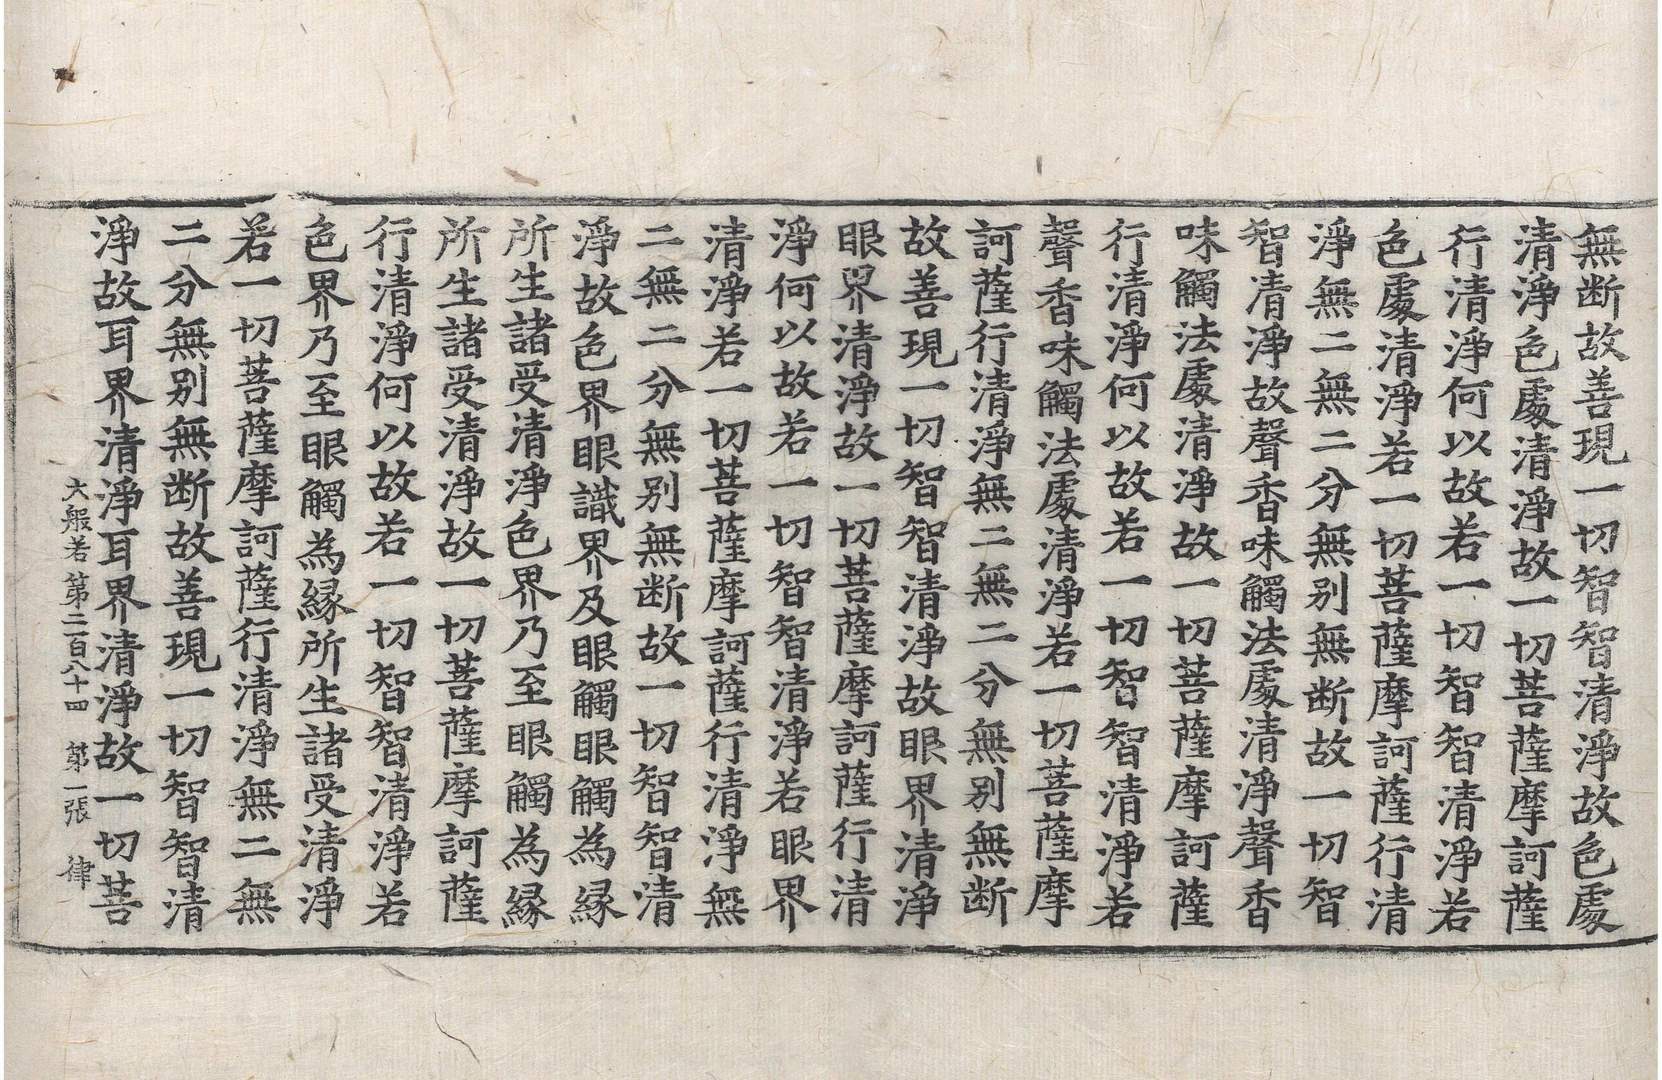 無断故善現一切智智清淨故色處
清淨色處清淨故一切菩薩摩訶薩
行清淨何以故若一切智智清淨若
色處清淨若一切菩薩摩訶薩行清
淨無二無二分無別無断故一切智
智清淨故聲香味觸法處清淨聲香
味觸法處清淨故一切菩薩摩訶薩
行清淨何以故若一切智智清淨若
聲香味觸法處清淨若一切菩薩摩
訶薩行清淨無二無二分無別無断
故善現一切智智清淨故眼界清淨
眼界清淨故一切菩薩摩訶薩行清
淨何以故若一切智智清淨若眼界
清淨若一切菩薩摩訶薩行清淨無
二無二分無別無断故一切智智清
淨故色界眼識界及眼觸眼觸為緣
所生諸受清淨色界乃至眼觸為緣
所生諸受清淨故一切菩薩摩訶薩
行清淨何以故若一切智智清淨若
色界乃至眼觸為緣所生諸受清淨
若一切菩薩摩訶薩行清淨無二無
二分無別無断故善現一切智智清
淨故耳界清淨耳界清淨故一切菩
大般若第二百八十四 第一張 律